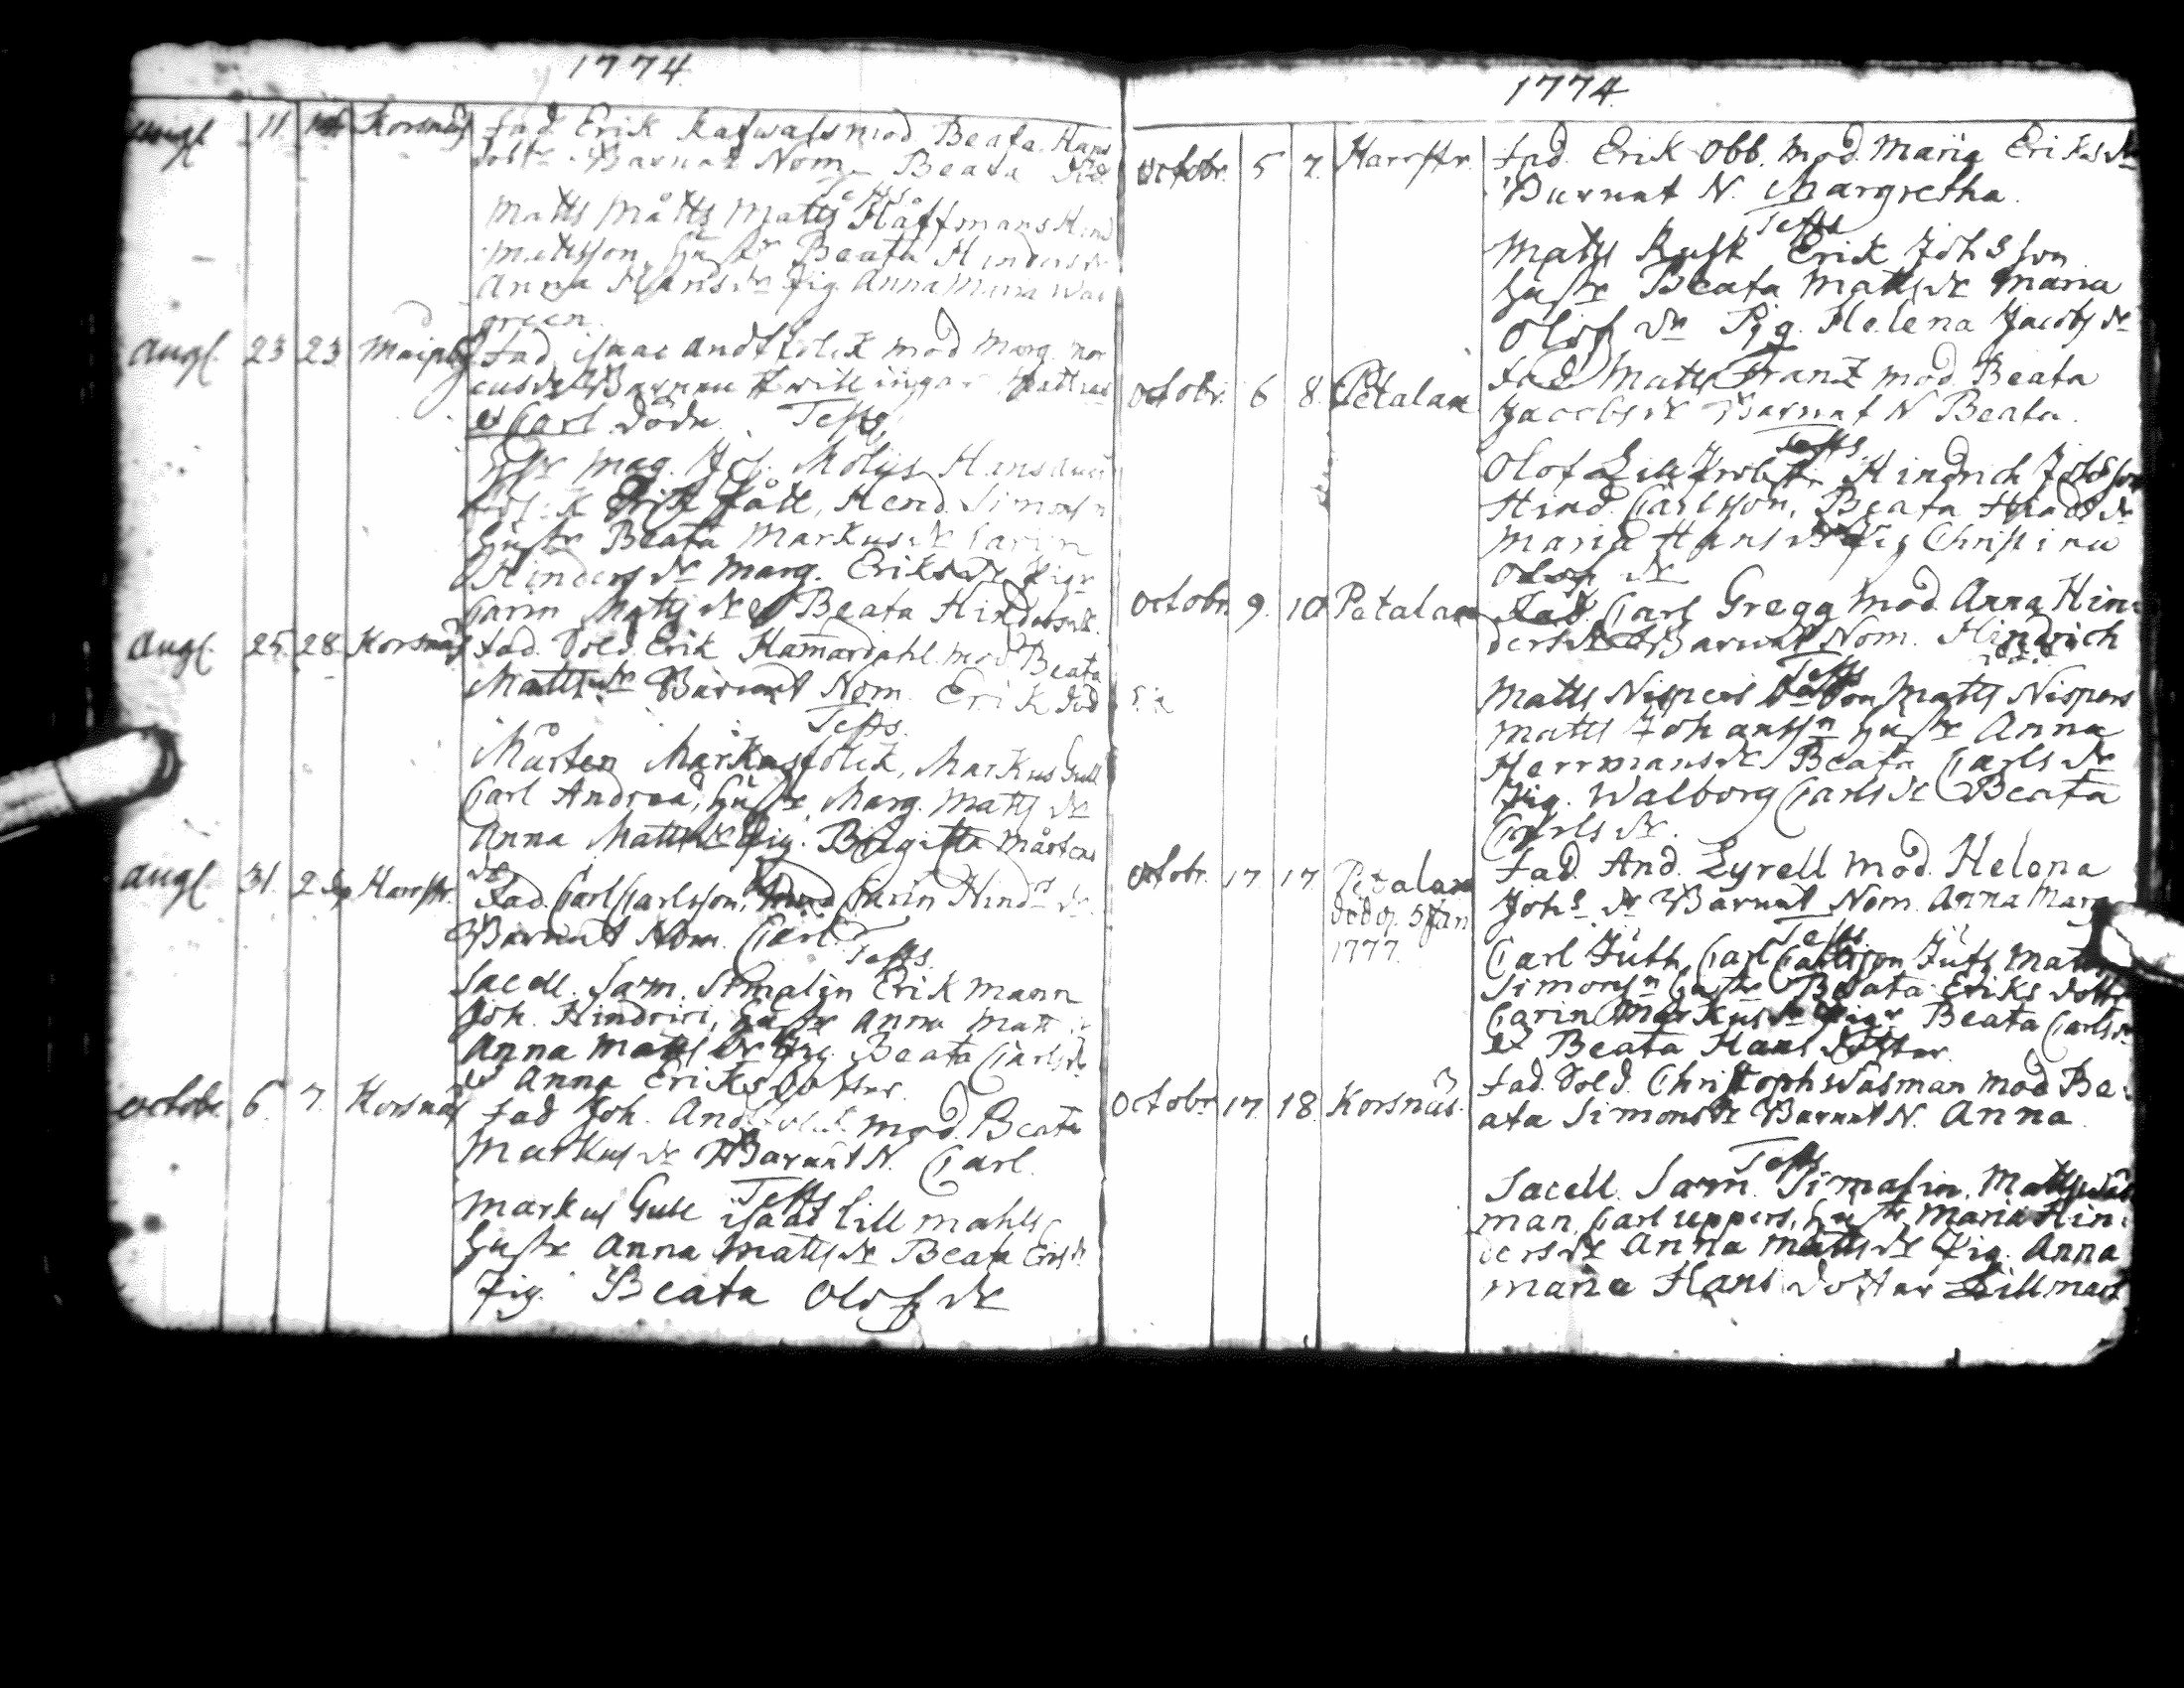 1774
Augl 11 14 Korsnäs Fad. Erik Kaswas mod Beata Hans
dottr Barnet Nom. Beata död.
Tests
Matts Måtts Matts Häffmans Hind
Mattsson, Hustr Beata Hinders dr
Anna Hans dr Pig. Anna Maria Wal
green.
Augl. 23 23 Fad. Isaac Andfolck mod Marg. Mar
cus dr Barnen Twillingar Mattias
et Carl döde. Tests
Mag. Hof. Molijs
Erik Fält, Hend. Simons n
Hustr Beata Markus dr Carin
Hinders dr Marg. Eriks dr Pigr
Carin Matts dr Beata Hinders dr.
Augl. 25 28 Korsnäs Fad. Sold. Erik Hamardahl mod Beata
Matts dr Barnet Nom. Erik död
Tests.
Mårten Markusfolck, Markus Gull
Carl Andrea, Hustr Marg. Matts dr
Anna Matts dr Pig. Brigitta Mårtens
dr
Augl. 31. 2 Sep Harrstr. Fad. Carl Carlsson, Mod Carin Hindrs dr
Barnet Nom. Carl.
Tests.
Sacell. Sam. Simalin Erik Mann
Joh. Hindrici, Hustr Anna Matt
Anna Matts dr Pig. Beata Carls dr
et Anna Eriks Dotter.
Octobr. 6. 7. Korsnäs Fad Joh. Andfolck mod. Beata
Markus dr Barnet N. Carl.
Tests
Markus Gull Isaac Lillmahls
Hustr Anna Matts dr Beata Eriks dr
Pig. Beata Olofs dr
1774
Octobr. 5 7. Harrstr. Fad. Erik Obb. Mod. Maria Eriks dr
Barnet N. Margretha.
Tests
Matts Rusk Erik Johsson
Hustr Beata Matts dr Maria
Olofs dr Pig. Helena Jacobs dr
Octobr. 6 8. Petalax Fad. Matts Frantz mod. Beata
Jacobs dr Barnet N Beata.
Tests.
Olof Hindrich Johsson
Hind. Carlsson, Beata Hind dr
Maria Hans dr Pig Christina
Olofs dr
Octobr. 9. 10 Petalax Fad. Carl Gregg Mod. Anna Hin
ders dr Barnet Nom. Hindrich
död.
Tests
Matts Nispers Matts Nispers
Matts Johanss n Hustr Anna
Herrmans dr Beata Carls dr
Pig. Walborg Carls dr Beata
Carls dr.
Octobr. 17. 17. Petalax Fad. And. Lyrell mod. Helena
död d. 5 Jan
1777.
Johs dr Barnet Nom. Anna Marg
Tests
Carl Juth Carl Carlsson Juts Matts
Simons n Hustr Beata Eriks dotter
Carin Markus dr Pigr Beata Carls dr
et Beata Hans Dotter.
Octobr 17. 18. Korsnäs. Fad. Sold. Christoph Wasman mod Be
ata Simons dr Barnet N. Anna.
Tests
Sacell. Sam. Simalin, Matts Wäs
man, Carl uppers, Hustr Maria Hin
ders dr Anna Matts dr Pig. Anna
Maria Hans dotter Lillmars